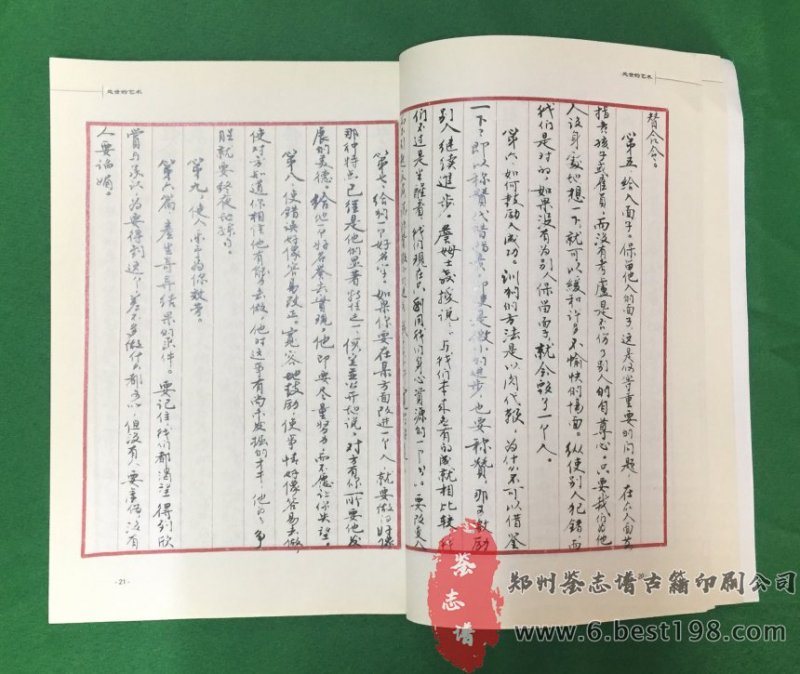 处世的艺术
替合企。
第五、给人面子。保留他人的面子,这是何等重要的问题。在众人面前
指责孩子或雇员,而没有考虑是否伤了别人的自尊心。只要我们为他
人设身处地想一下,就可以缓和许多不愉快的场面。纵使别人犯错而
我们是对的,如果没有为别人保留面子,就会毁了一个人。
第六、如何鼓励人成功。训狗的方法是以肉代鞭,为什么不可以借鉴
一下?即以称赞代替惩责,即使是微小的进步,也要称赞,那可鼓励
别人继续进步。詹姆士教授说:与我们本来应有的成就相比较,
们不过是半醒着,我们现在只利用我们身心资源的一小
第七、给狗一个好名字。如果你要在某方面改进一个人,就要做得好像
那种特点已经是他的显著特性之一。假定并公开地说,对方有你所要他发
展的美德。给他一个好名誉去实现,他即要尽量努力而不愿让你失望。
第八、使错误好像容易改正。宽容地鼓励,使事情好像容易去做,
使对方知道你相信他有能力去做,他对这事有尚未发掘的才干,他
就要终夜地练习。
第九、使人乐意为你效劳。
第六篇 产生奇异结果的
要记住,我们都渴望得到欣
赏与承认,为要得到这个,差不多做什么都可以,但没有人要虚伪,没有
人要谄媚。
处世的艺术
-21-
鉴志谱
郑州鉴志谱古籍印刷公司
www.6.best198.com